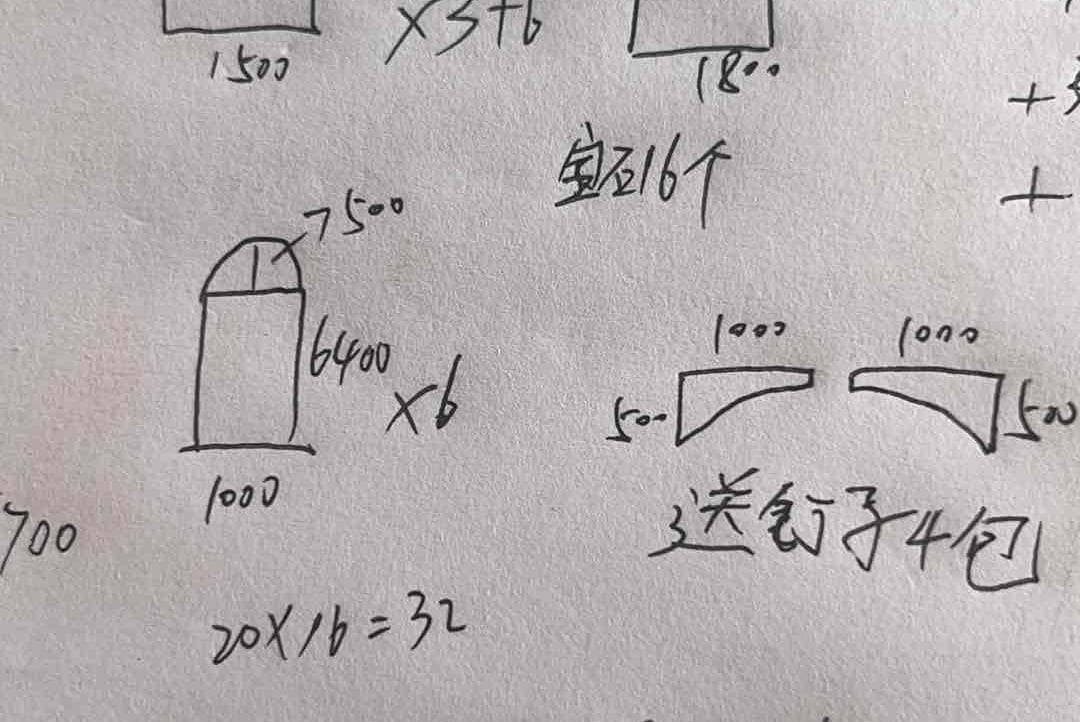 ×3+6
1500
1800
+
宝石16个
+
7500
6400
×6
1000
1000
1000
500
500
送钉子4包
700
20×16=32